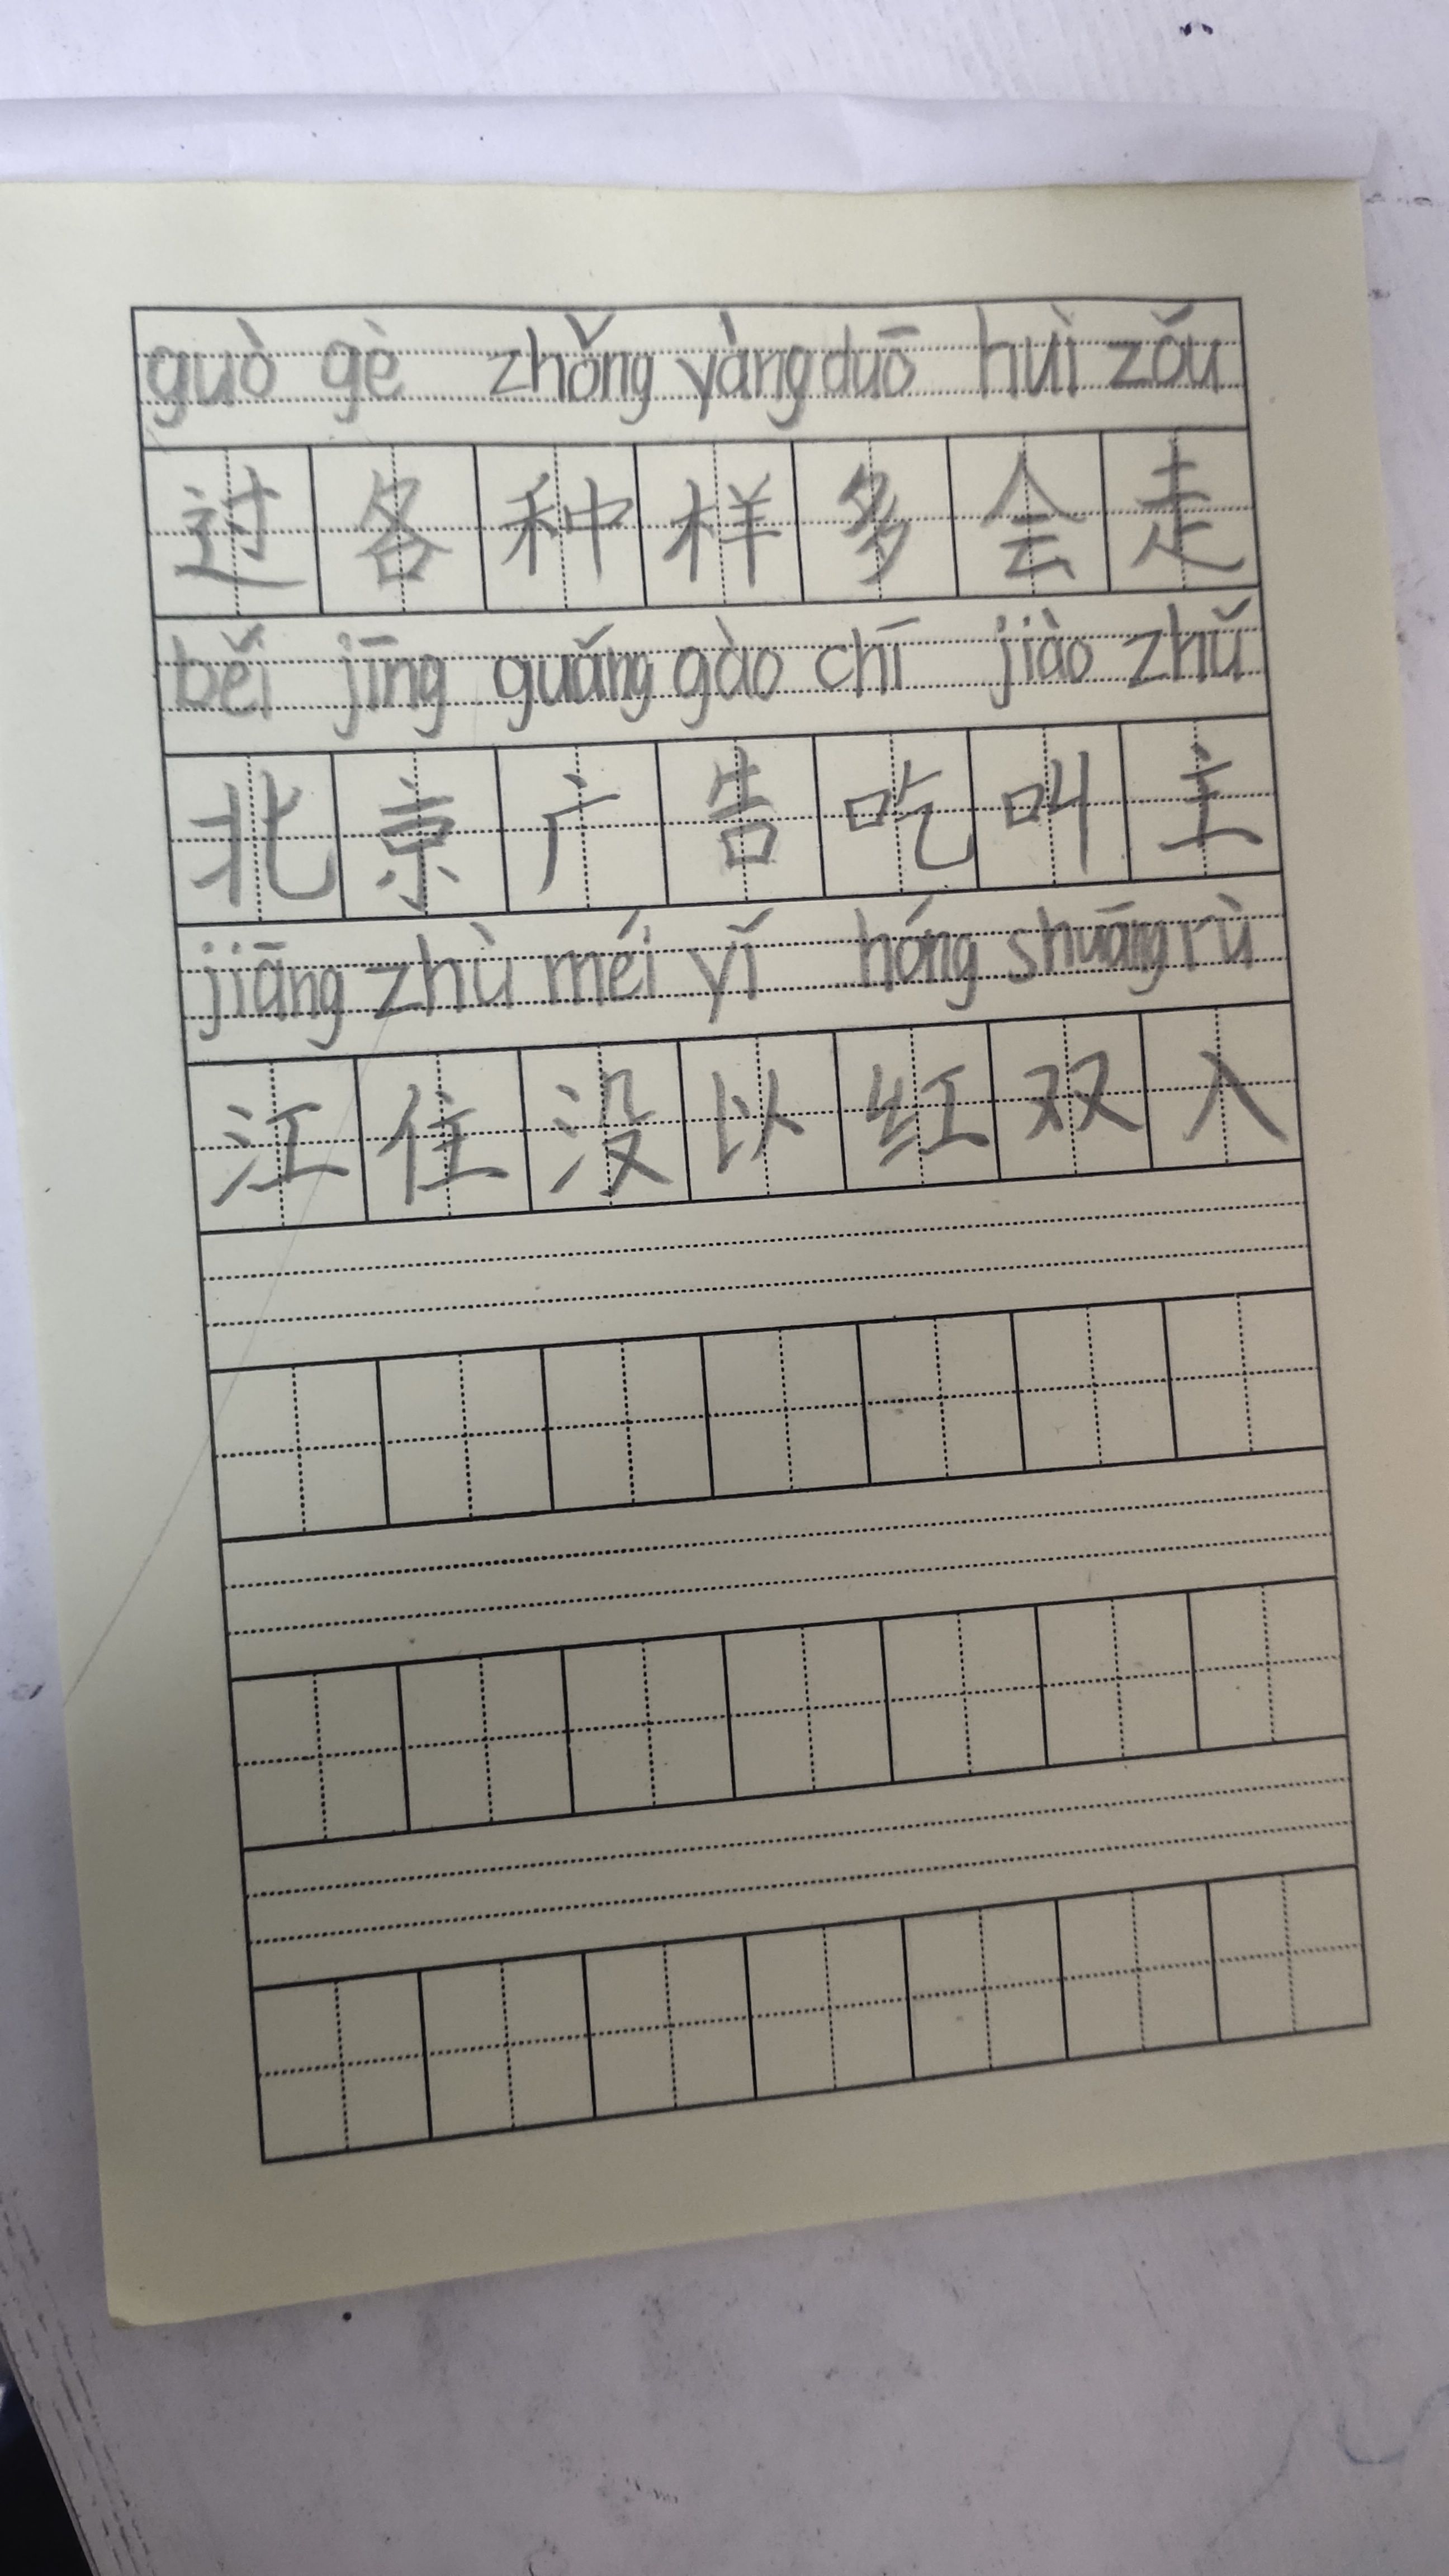 guò gè zhǒng yàng duō huì zǒu
过各种样多会走
běi jīng guǎng gào chī jiào zhǔ
北京广告吃叫主
jiāng zhù méi yǐ hóng shuāng rù
江住没以红双入